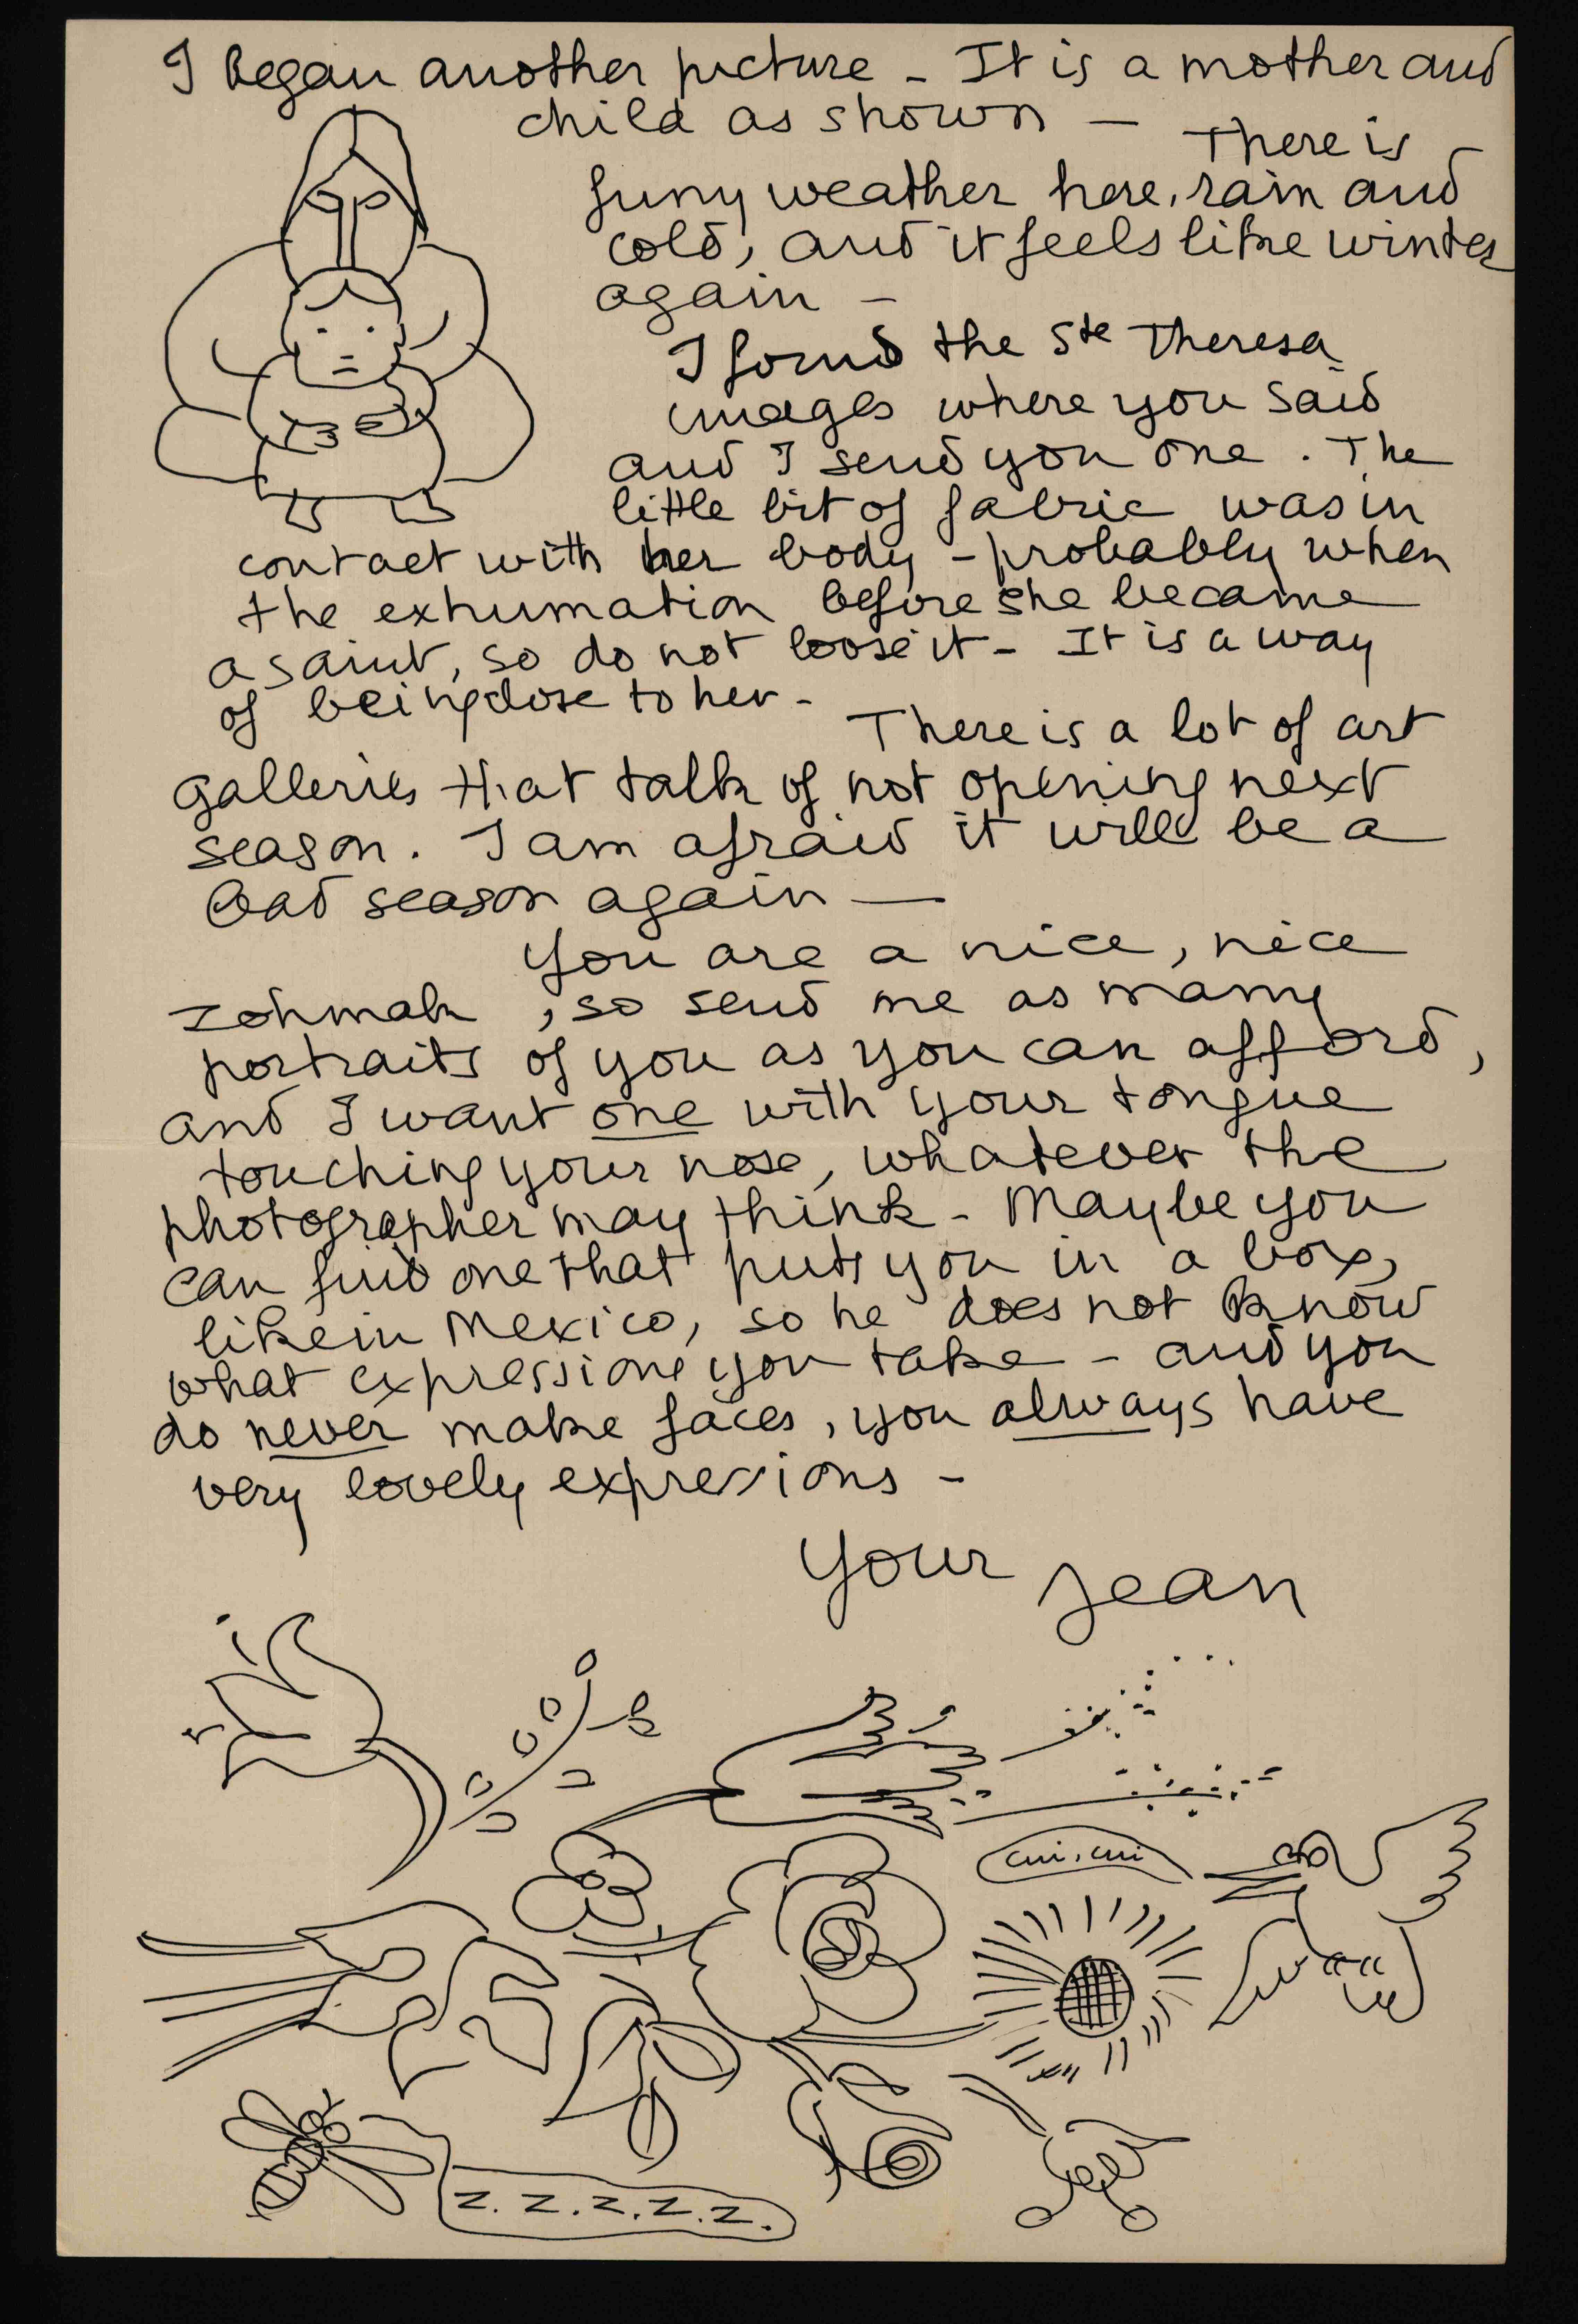 I began another picture - It is a mother and
child as shown -
There is
funy weather here, rain and
cold, and it feels like winter
again -
I found the Ste Theresa
images where you said
and I send you one. The
little bit of fabric was in
contact with her body - probably when
the exhumation before she became
a saint, so do not loose it - It is a way
of being close to her -
There is a lot of art
galleries that talk of not opening next
season. I am afraid it will be a
bad season again —
You are a nice, nice
Zohmah, so send me as many
portraits of you as you can afford,
and I want one with your tongue
touching your nose, whatever the
photographer may think - Maybe you
can find one that puts you in a box,
like in Mexico, so he does not know
what expressions you take - and you
do never make faces, you always have
very lovely expressions -
Your Jean
cui, cui
Z.Z.Z.Z.Z.Z.